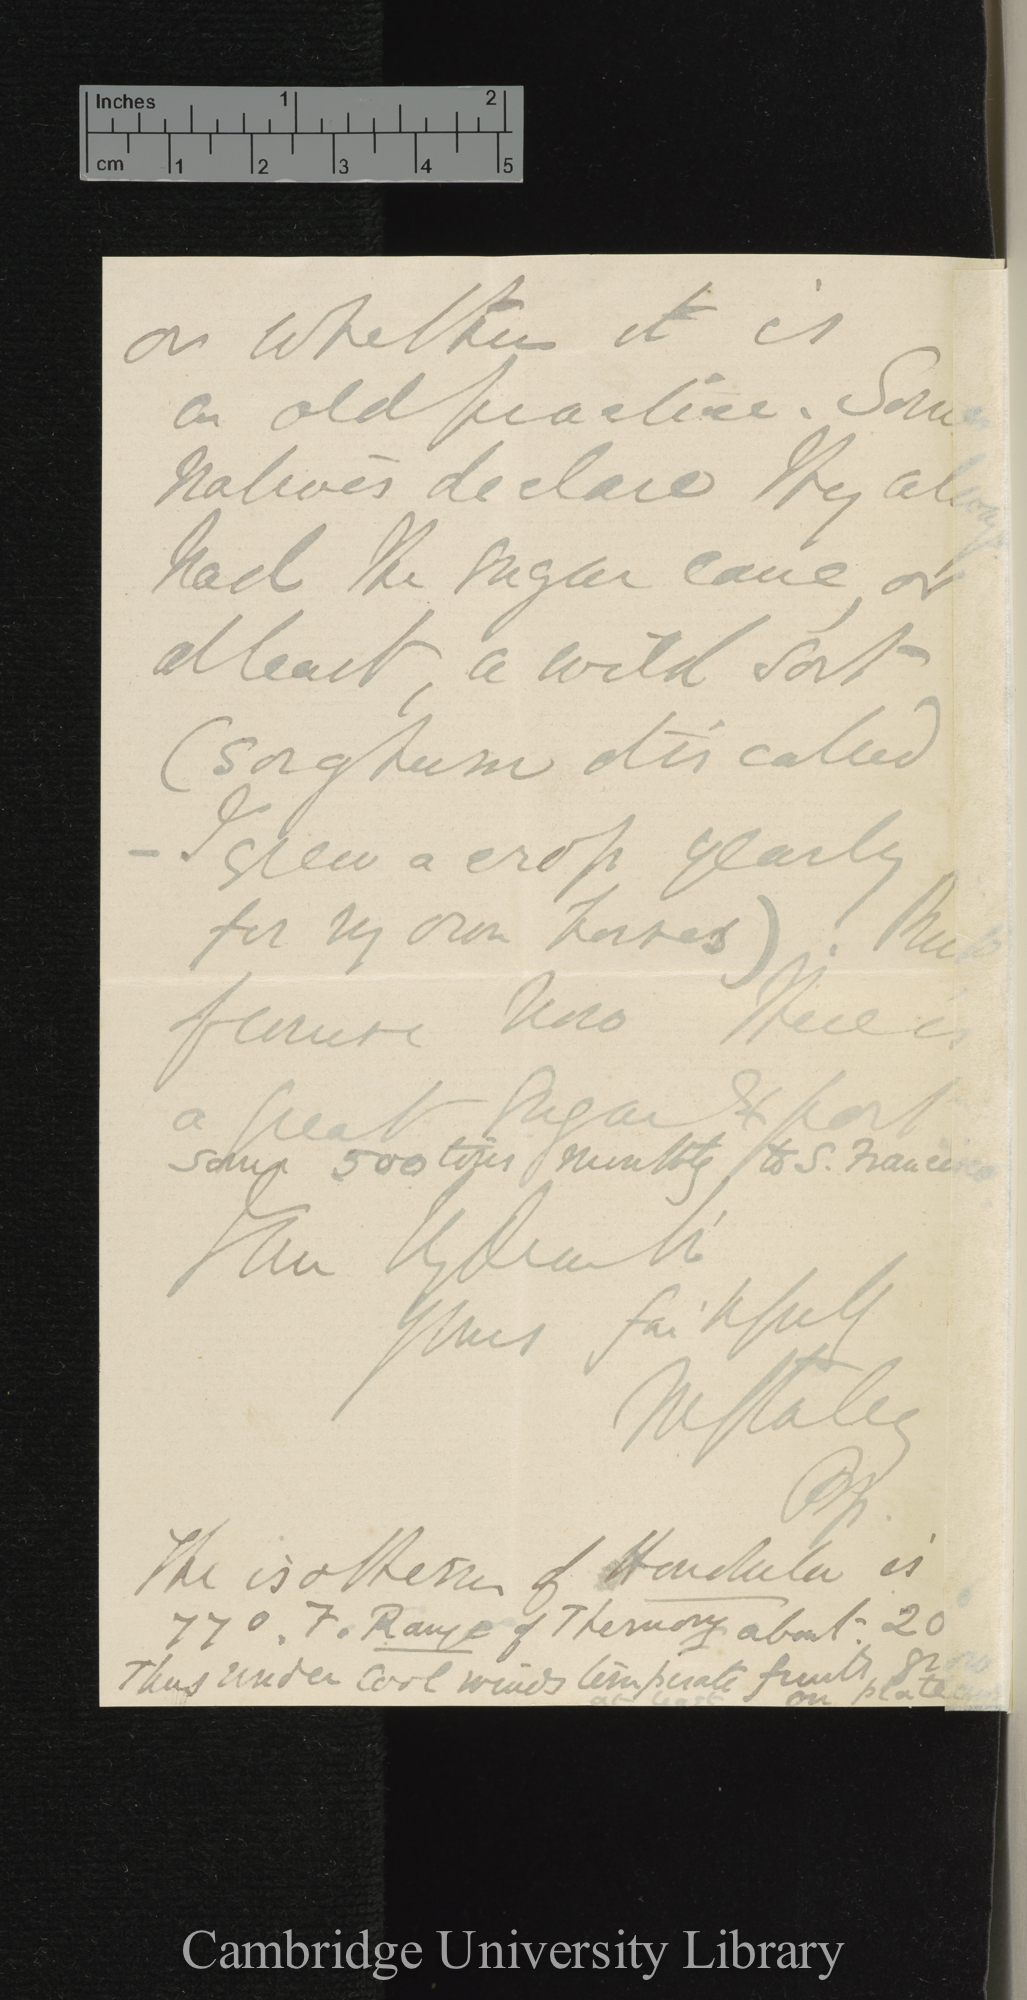 Inches 1 2
cm 1 2 3 4 5
or whether it is
an old practice. Some
natives declare they always
had the sugar cane, or
at least, a wild sort
(Sorghum it is called
- I grew a crop yearly
for my own horses). But
of course now there is
a great sugar export
some 500 tons monthly to S. Francisco.
I am my dear Sir
yours faithfully
Staley
Bp.
The isotherm of Honolulu is
77°. F. Range of Thermom about 20°
Thus under cool winds temperate fruits grow
at least on plateaux
Cambridge University Library